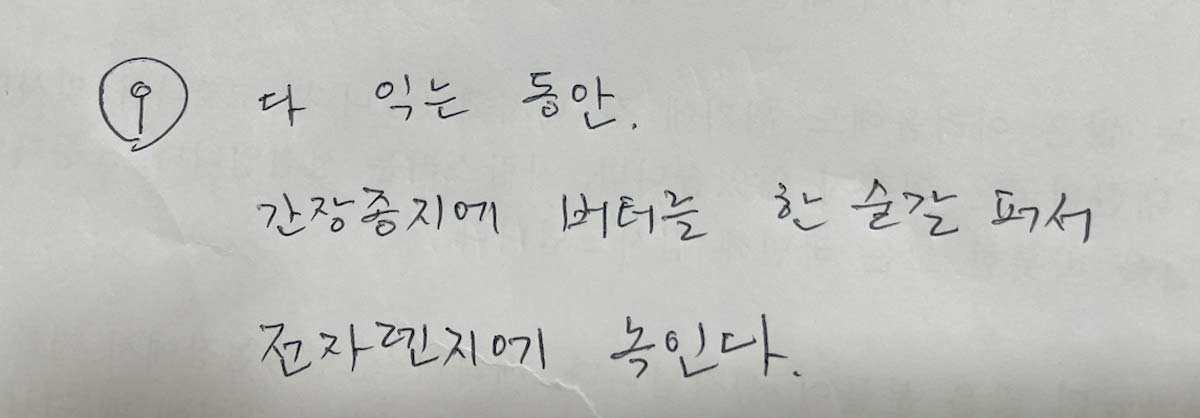 ⑨ 다 익는 동안.
간장종지에 버터를 한 숟갈 퍼서
전자렌지에 녹인다.